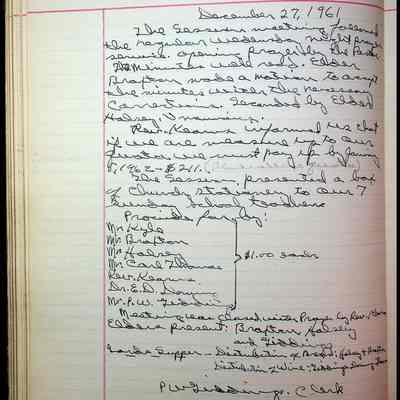 December 27, 1961
The Session meeting followed
the regular Wednesday night prayer
service. opening prayer by the Pastor
The minutes were read. Elder
Braxton made a motion to accept
the minutes with the necessary
corrections. Seconded by Elder
Halsey, Unanimous.
Rev. Kearns informed us that
if we are measure up to our
quota we must pay up by January
5, 1962 - $241.
The Session presented a box
of Church stationery to our 7
Sunday School teachers
Provided for by:
Mr. Kyle
Mr. Braxton
Mr. Halsey
Mr. Carl Thomas
Rev. Kearns
Dr. E.D.
Mr. P.W. Giddings
$1.00 each
Meeting was closed with Prayer by Rev.
Elders present: Braxton, Halsey
and Giddings
Lords Supper - Distribution of Bread: Halsey & Braxton
Distribution of Wine: Giddings
P W Giddings, Clerk